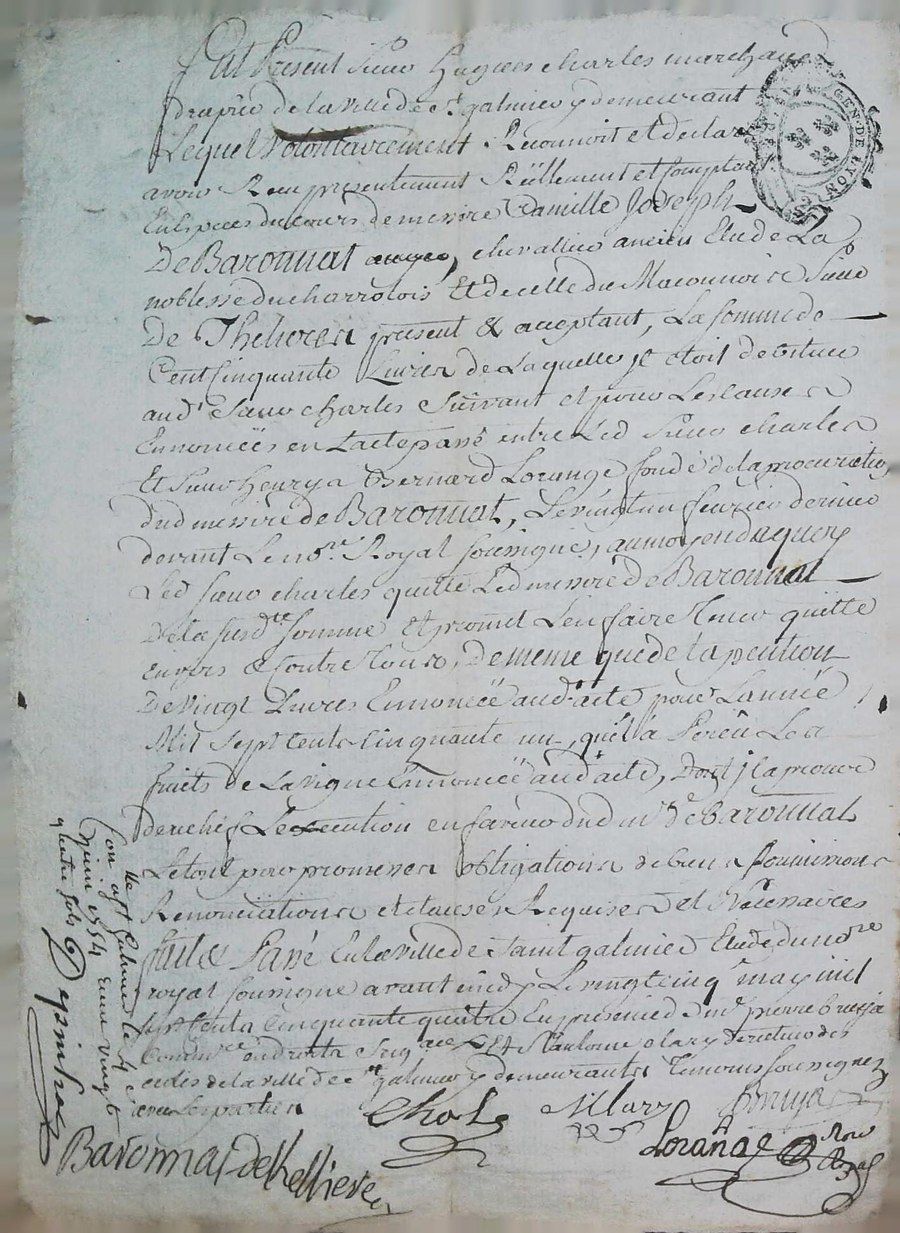 Fut Present Sieur Hugues charles marchand
drapier de la ville de st galmier y demeurant
Lequel volontairement Reconnoit et declare
avoir Receu presentement Rëellement et comptant
En Especes du cours de messire Camille Joseph
De Baronnat chevallier ancien Elu de La
noblesse du charrolois Et de celle du Maconnois Sieur
De Thelieres present & acceptant, La somme de
Cent Cinquante Livres de Laquelle il etoit debiteur
audt Sieur charles Suivant et pour Les causes
Ennoncëes en Lacte passé entre Led Sieur charles
Et Sieur Henry Bernard Lorange fondé de la procuration
dud messire de Baronnat, Le vingt un fevrier dernier
devant Le nore Royal soussigne, au moyen de quoy
Led sieur charles quitte Led messire de Baronnat
De la susdte somme Et promet L'en faire Tenir quitte
Envers & Contre Tous, De meme que de la pention
De vingt Livres Ennoncëe aud. acte pour L'année
Mil Sept Cents Cinquante un, qu'il a Perëu Les
fruits de La vigne Ennoncëe aud. acte, Dont
derechef L'exècution en faveur dud mre de Baronnat
Le tout par promesses obligations de biens soumissions
Renonciations et clauses Requises et Necessaires
fait & Passé En La ville de Saint galmier Etude du nore
royal soussigne avant midy Le vingt cinqe may mil
sept Cents Cinquante quatre En presence de mre pierre
Commre aux droits Seigaux Et
de la ville de st galmier y demeurants Temoins soussignez
avec Les parties
Charles Mlary
Lorange Nore Royal
Baronnat de Thellieres
Con. a st Galmier le 4e
juin 1754 Recu vingt
quatre sols